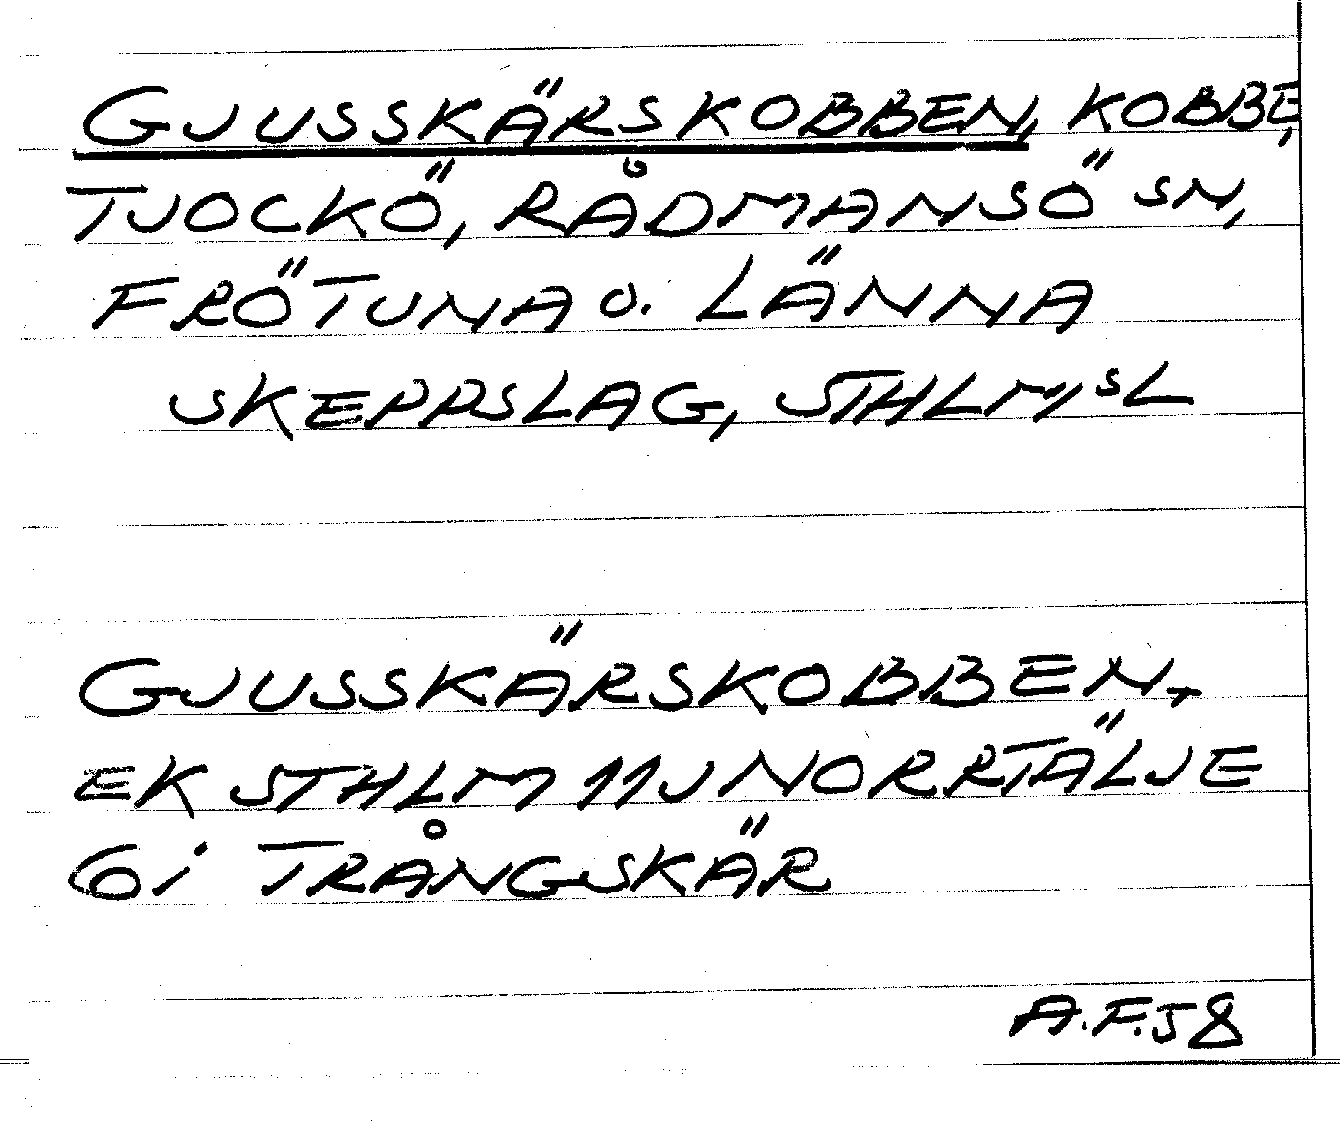 GJUSSKÄRSKOBBEN, KOBBE,
TJOCKÖ, RÅDMANSÖ SN,
FRÖTUNA O. LÄNNA
SKEPPSLAG, STHLM,S L
GJUSSKÄRSKOBBEN,-
EK STHLM 11J NORRTÄLJE
6i TRÅNGSKÄR
A.F.58